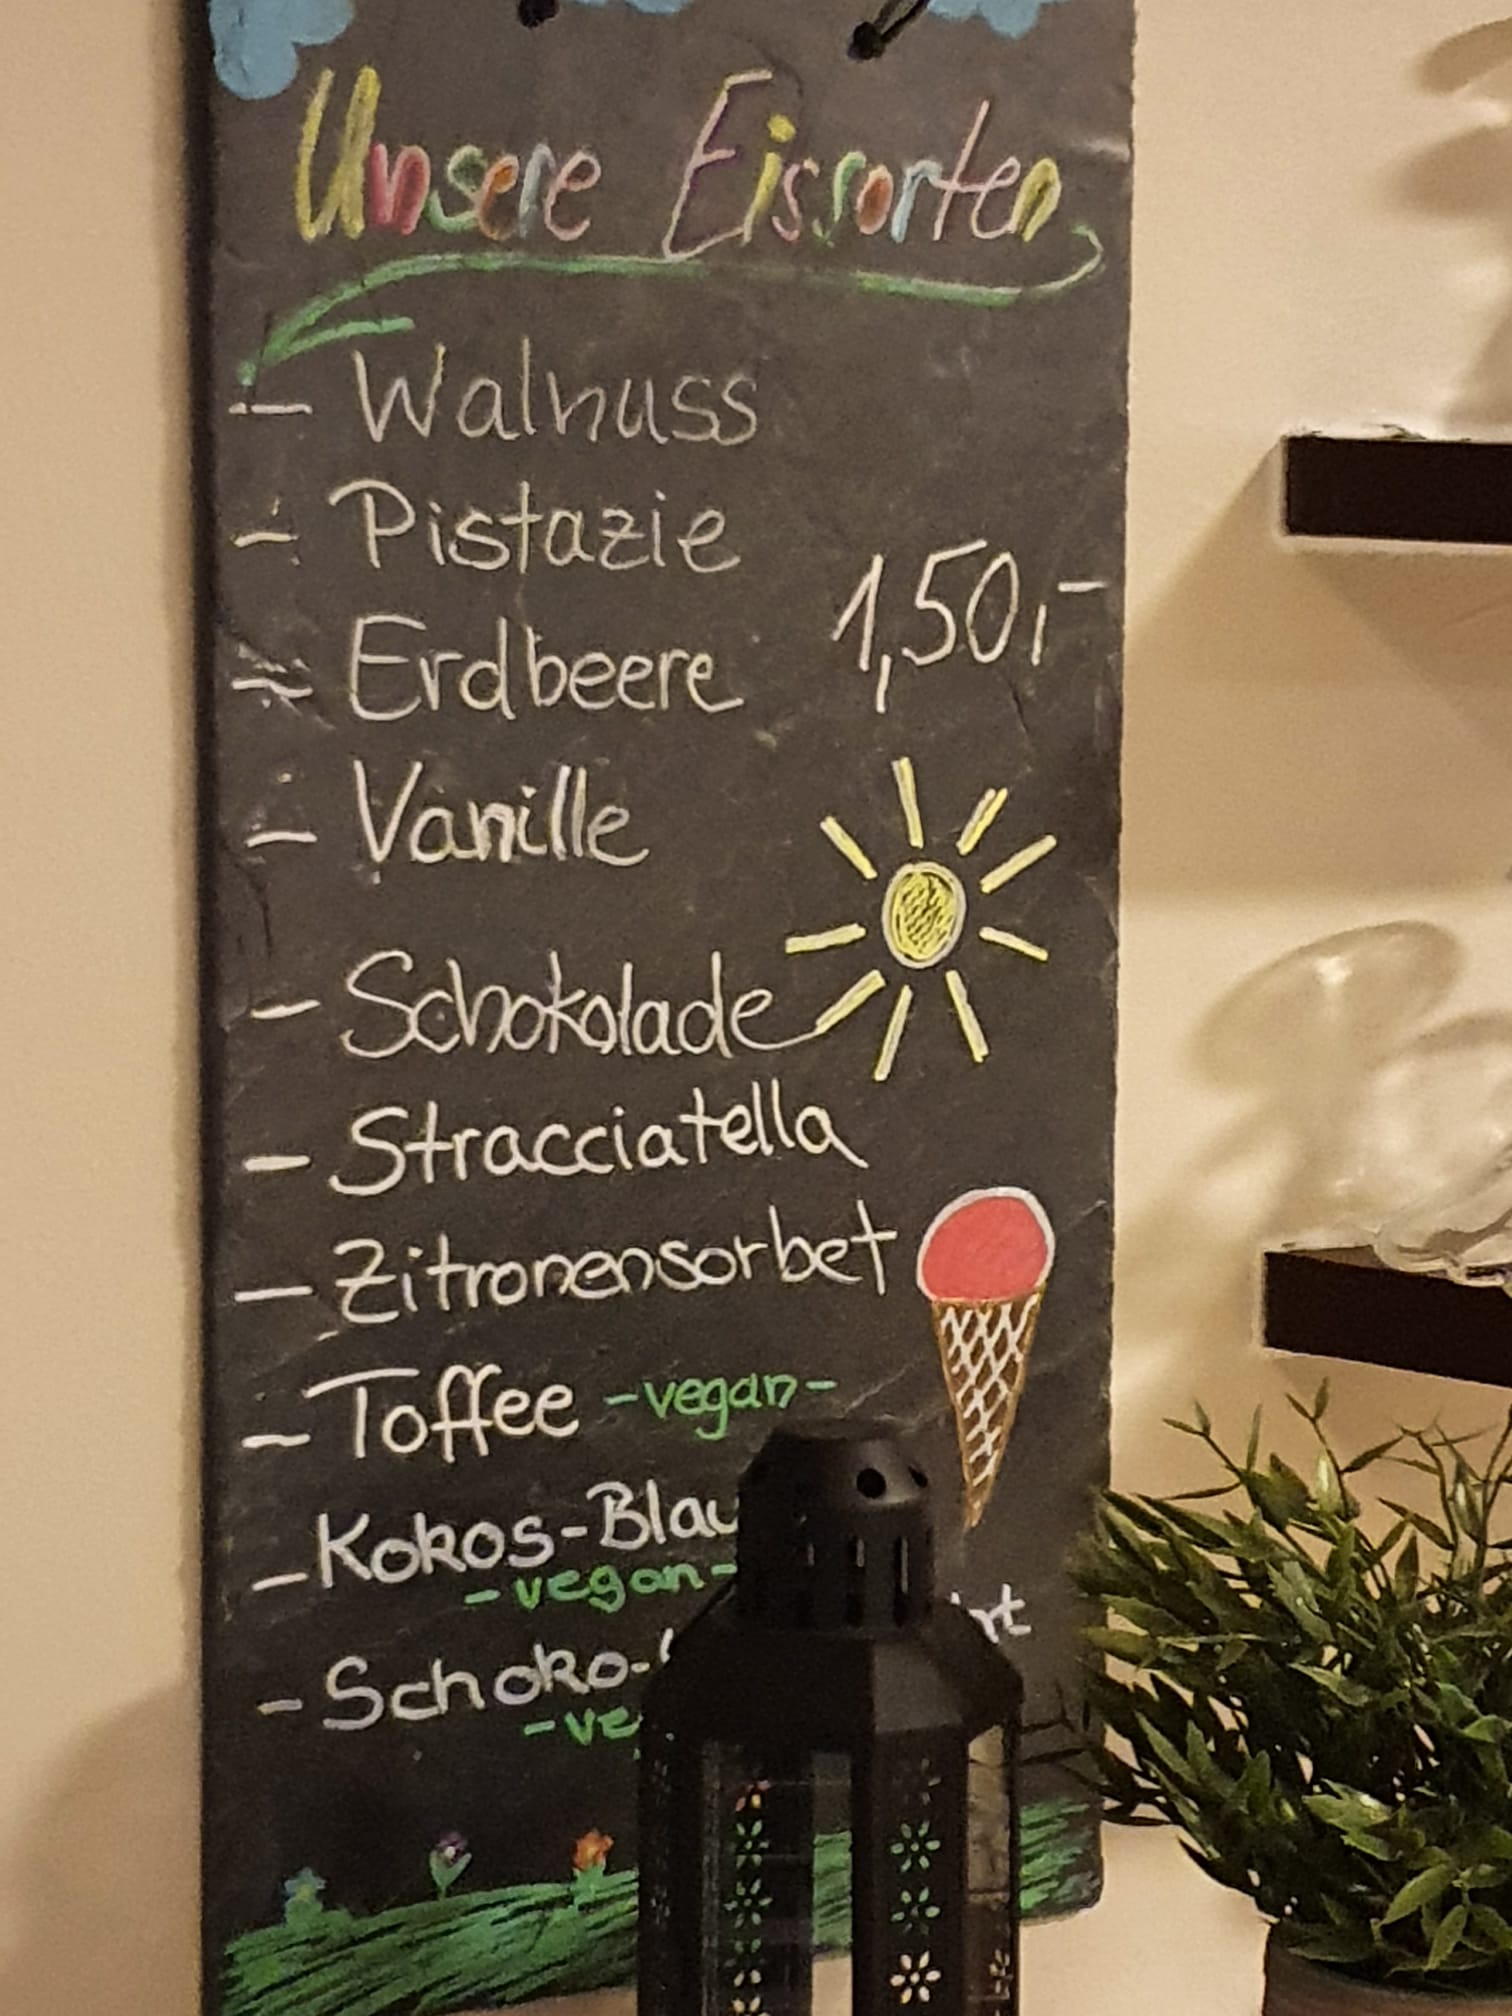 Unsere Eissorten
- Walnuss
- Pistazie
- Erdbeere
1,50,-
- Vanille
- Schokolade
- Stracciatella
- Zitronensorbet
- Toffee -vegan-
- Kokos-Blau
-vegan-
- Schoko-